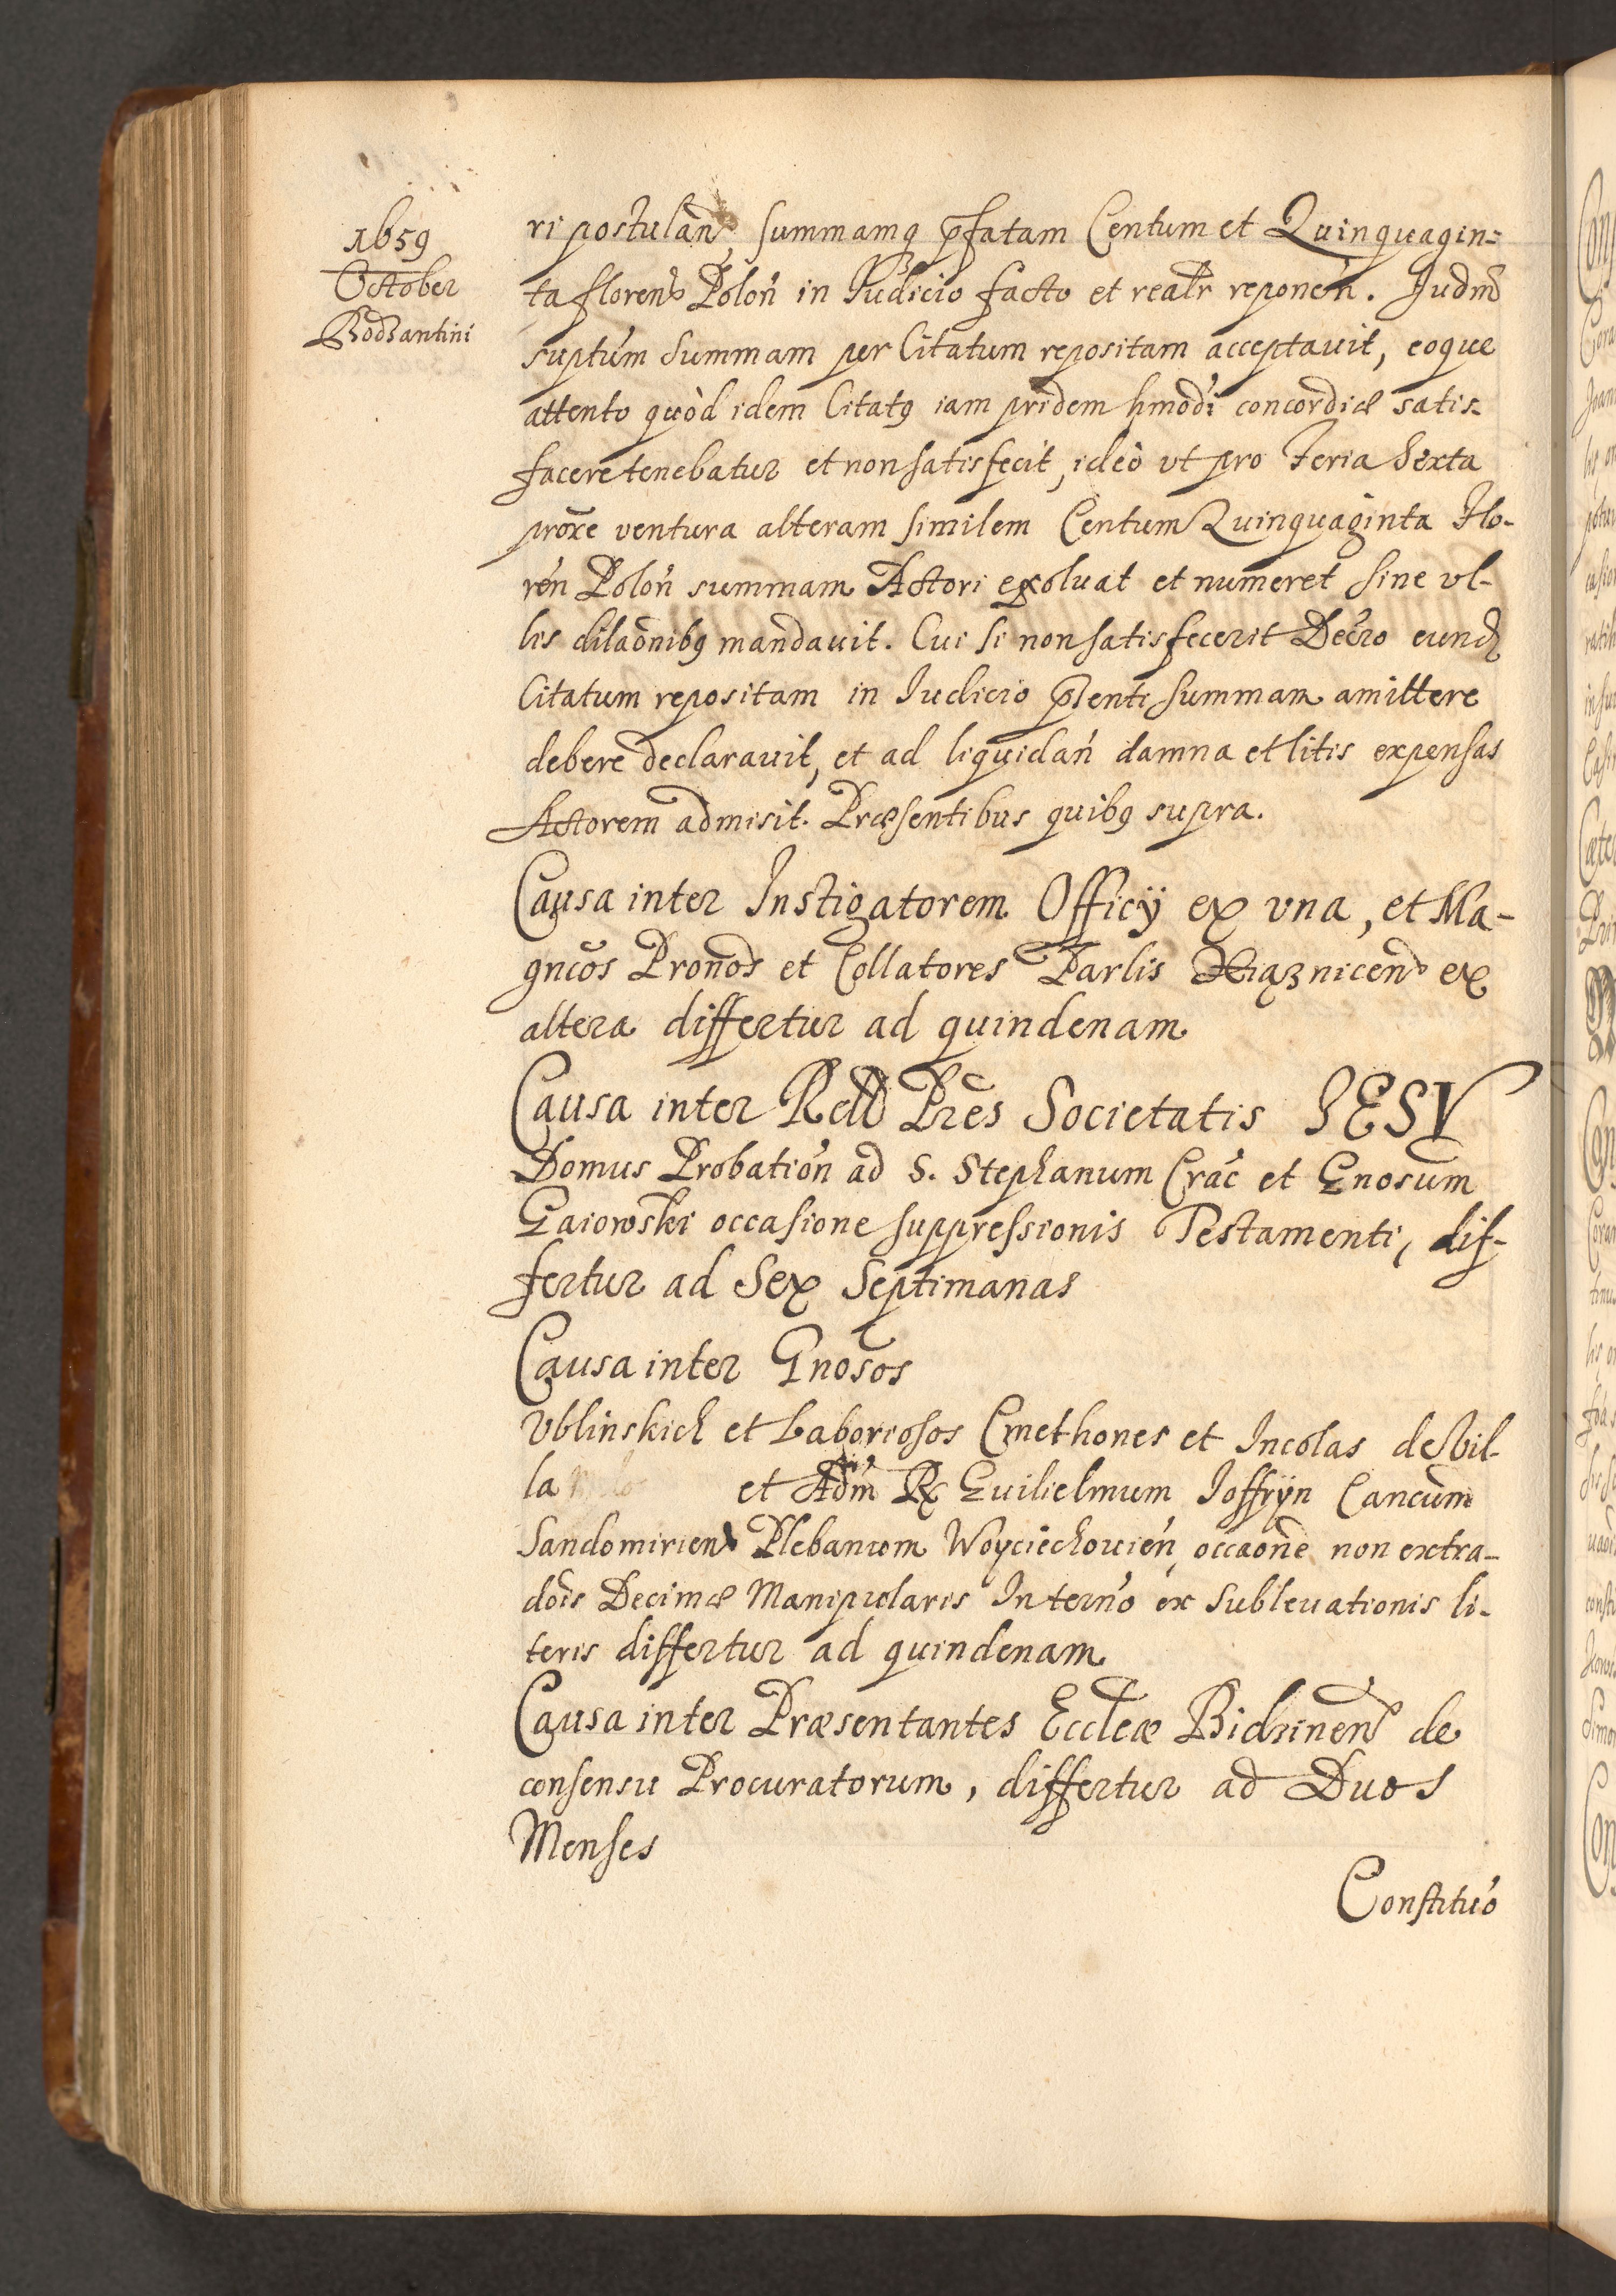 1659
October
Bodzantini
ri postulań, summamq p̄fatam Centum et Quinquagin=
ta floreń Poloń in Iudicio facto et realr̄ reponeń. Iudm̄
suptúm Summam per Citatum repositam acceptauit, eoque
attento quòd idem Citatq iam pridem hmōdi concordiæ satis-
facere tenebatur et non satisfecit, ideò vt pro Feria Sexta
prox̄e ventura alteram similem Centum Quinquaginta Flo-
reń Poloń summam Actori exoluat et numeret sine vl-
lis dilaōnibq mandauit. Cui si non satisfecerit Decŕo eund
Citatum repositam in Iudicio p̄senti summam amittere
debere declarauit, et ad liquidań damna et litis expensas
Actorem admisit. Præsentibus quibq supra.
Causa inter Instigatorem Officÿ ex vna, et Ma-
gnc̄os Pronōs et Collatores Parlis Xiąznicen ex
altera differtur ad quindenam
Causa inter Rdd Pr̄es Societatis IESV
Domus Probatioń ad S. Stephanum Crać et Gnosum
Gaiowski occasione suppressionis Testamenti, dif-
fertur ad Sex Septimanas
Causa inter Gnosos
Vblinskich et Laboriosos Cmethones et Incolas de Vil-
la et Adḿ R Guilielmum Joffrÿn Cancūm
Sandomirien Plebanum Woyciechouień, occaōne non extra-
dōis Decimæ Manipularis Interńo ex Subleuationis li-
teris differtur ad quindenam
Causa inter Præsentantes Eccl̄æ Bidzinen de
consensu Procuratorum, differtur ad Duos
Menses
Constitúo